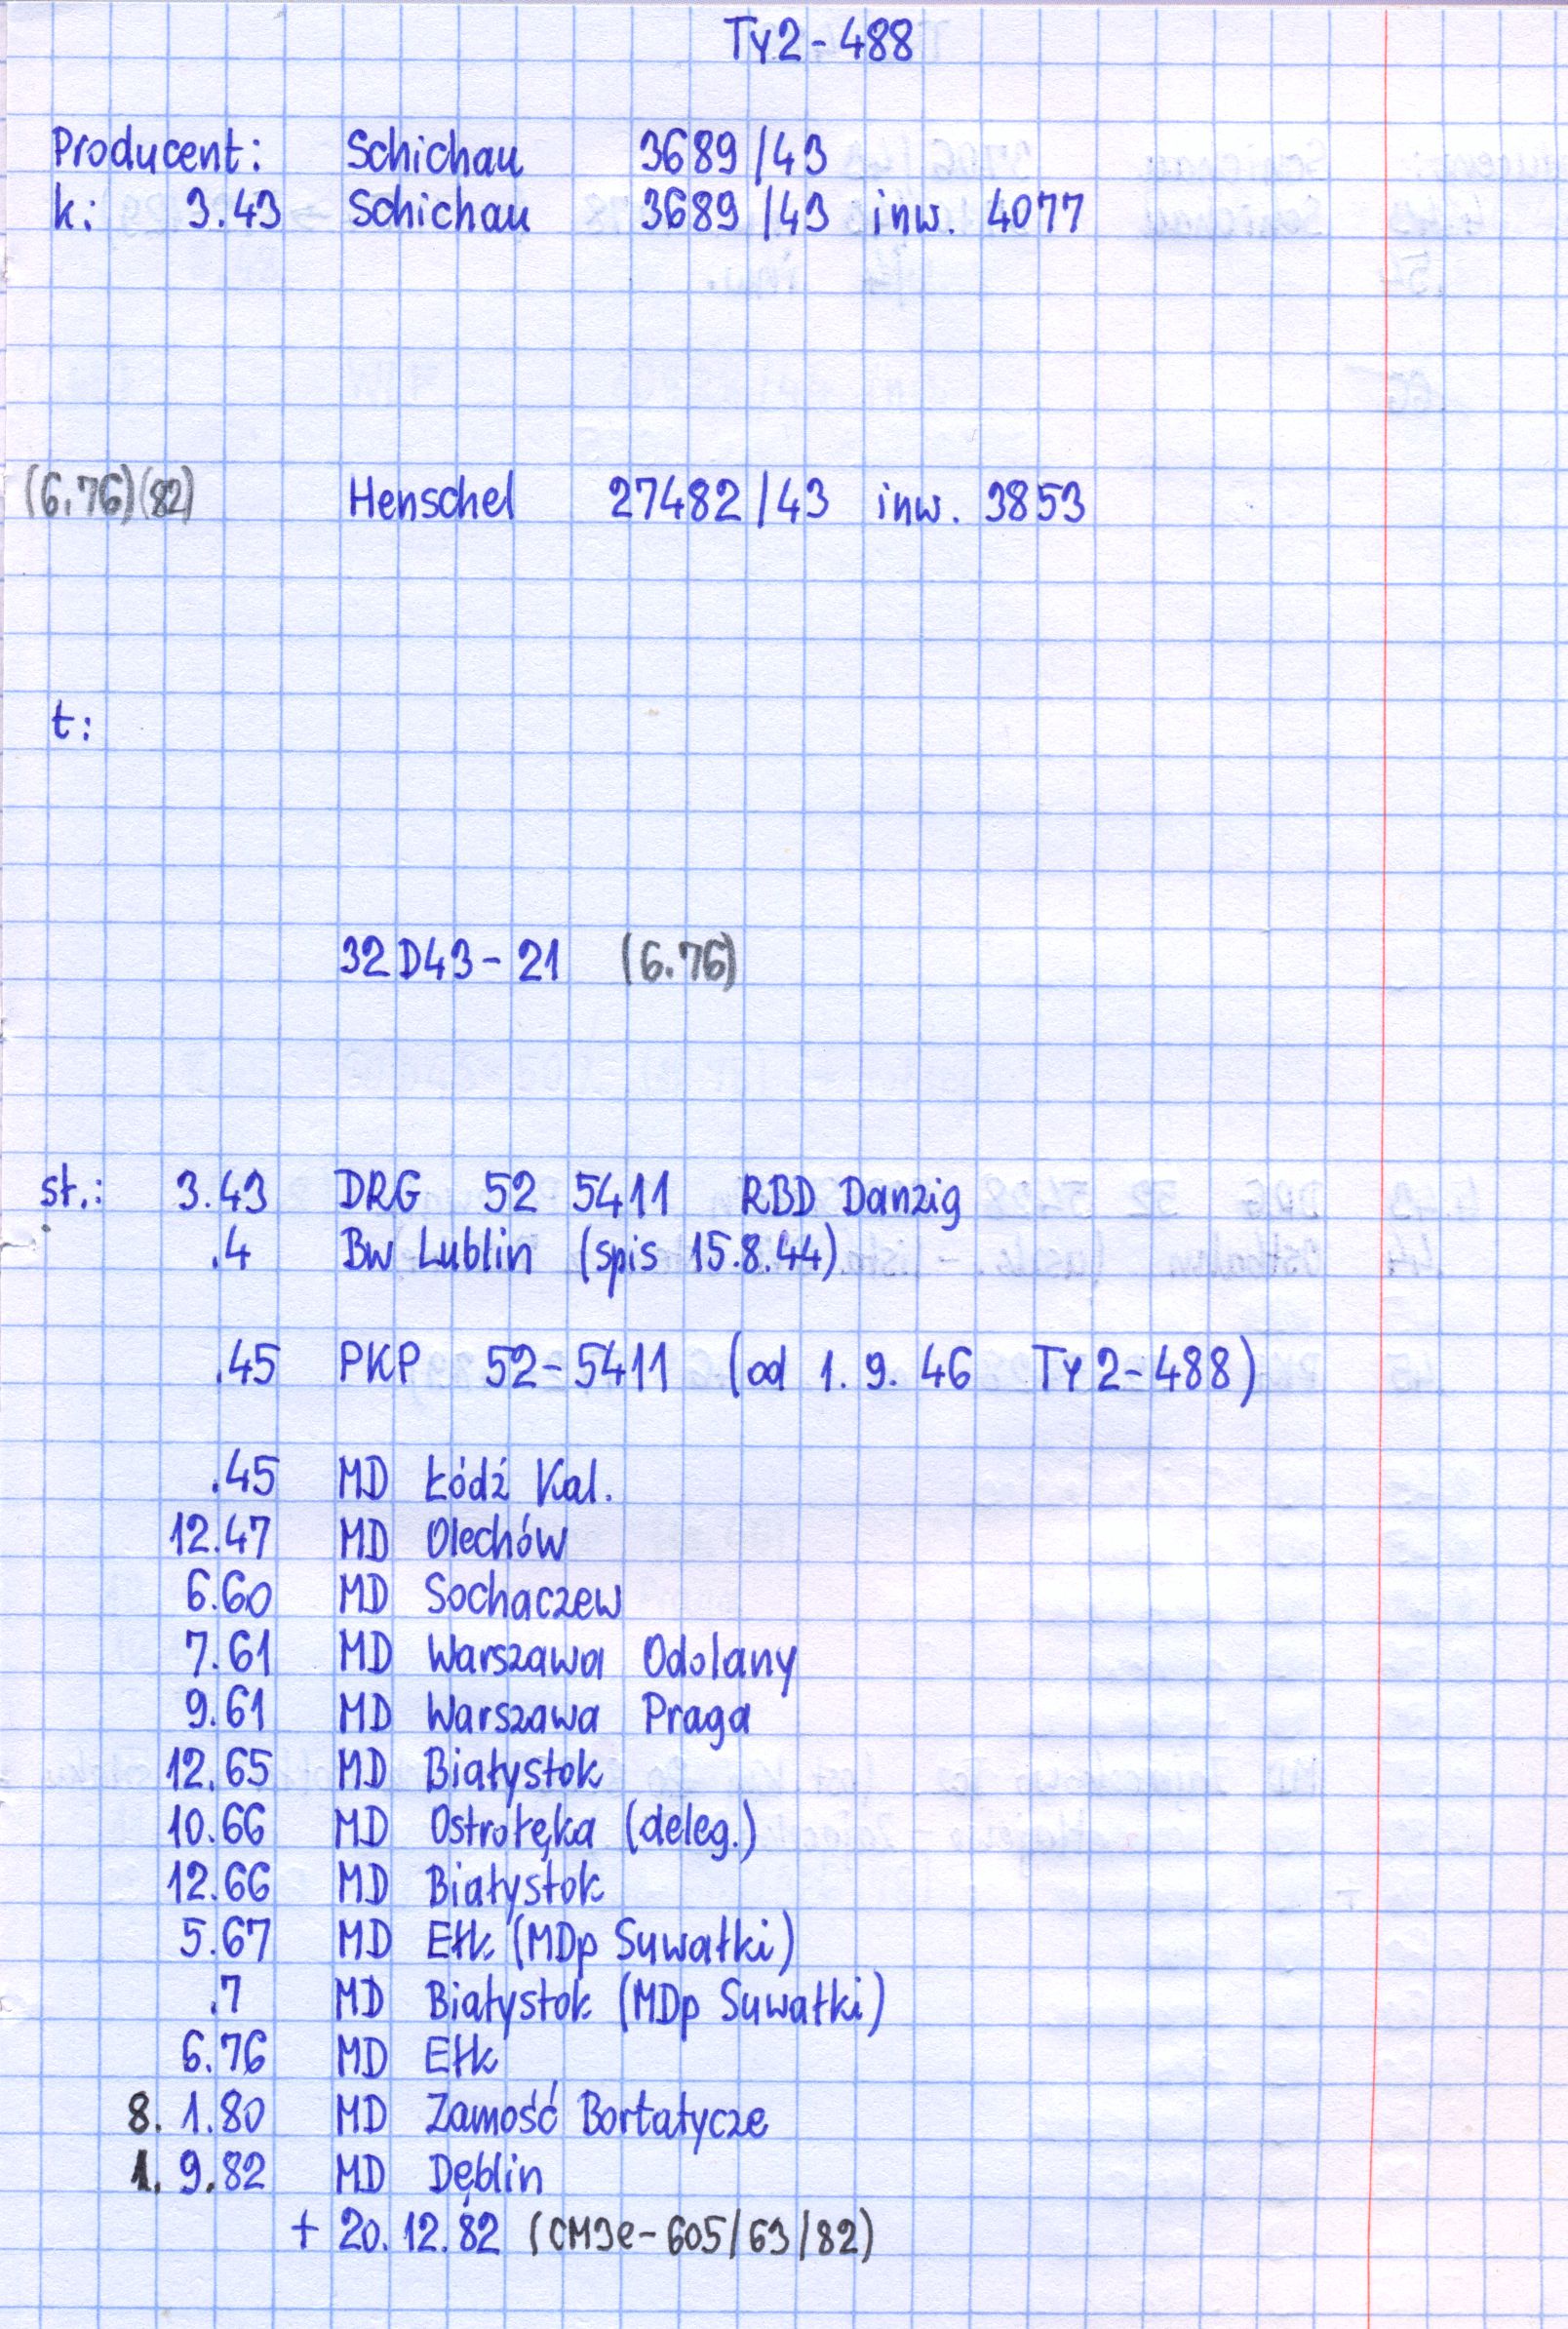 Ty2-488
Producent: Schichau 3689/43
k: 3.43 Schichau 3689/43 inw. 4077
(6.76)(82) Henschel 27482/43 inw. 3853
t:
32D43-21 (6.76)
st.: 3.43 DRG 52 5411 RBD Danzig
.4 Bw Lublin (spis 15.8.44)
.45 PKP 52-5411 (od 1.9.46 Ty2-488)
.45 MD Łódź Kal.
12.47 MD Olechów
6.60 MD Sochaczew
7.61 MD Warszawa Odolany
9.61 MD Warszawa Praga
12.65 MD Białystok
10.66 MD Ostrołęka (deleg.)
12.66 MD Białystok
5.67 MD Ełk (MDp Suwałki)
.7 MD Białystok (MDp Suwałki)
6.76 MD Ełk
8. 1.80 MD Zamość Bortatycze
1. 9.82 MD Dęblin
+ 20.12.82 (CM3e-605/63/82)